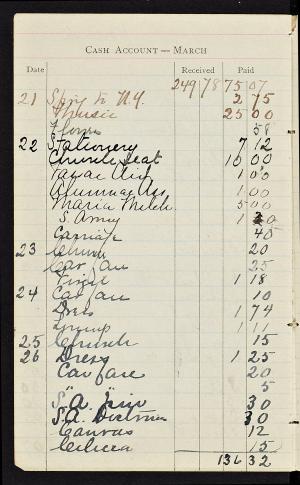 CASH ACCOUNT — MARCH
Date Received Paid
249 78 75 07
21 to N.Y. 2 75
Music 25 00
58
22 Stationery 7 12
Church Seat 10 00
1 00
Alumnae Ass 1 00
Maria Welch 5 00
S. Army 1 30
40
23 Church 20
Car fare 25
1 18
24 Car fare 10
Dres 1 74
1 11
25 Church 15
26 Dress 1 25
Car fare 20
5
S. A. 30
S. A. 30
Canvas 12
15
136 32